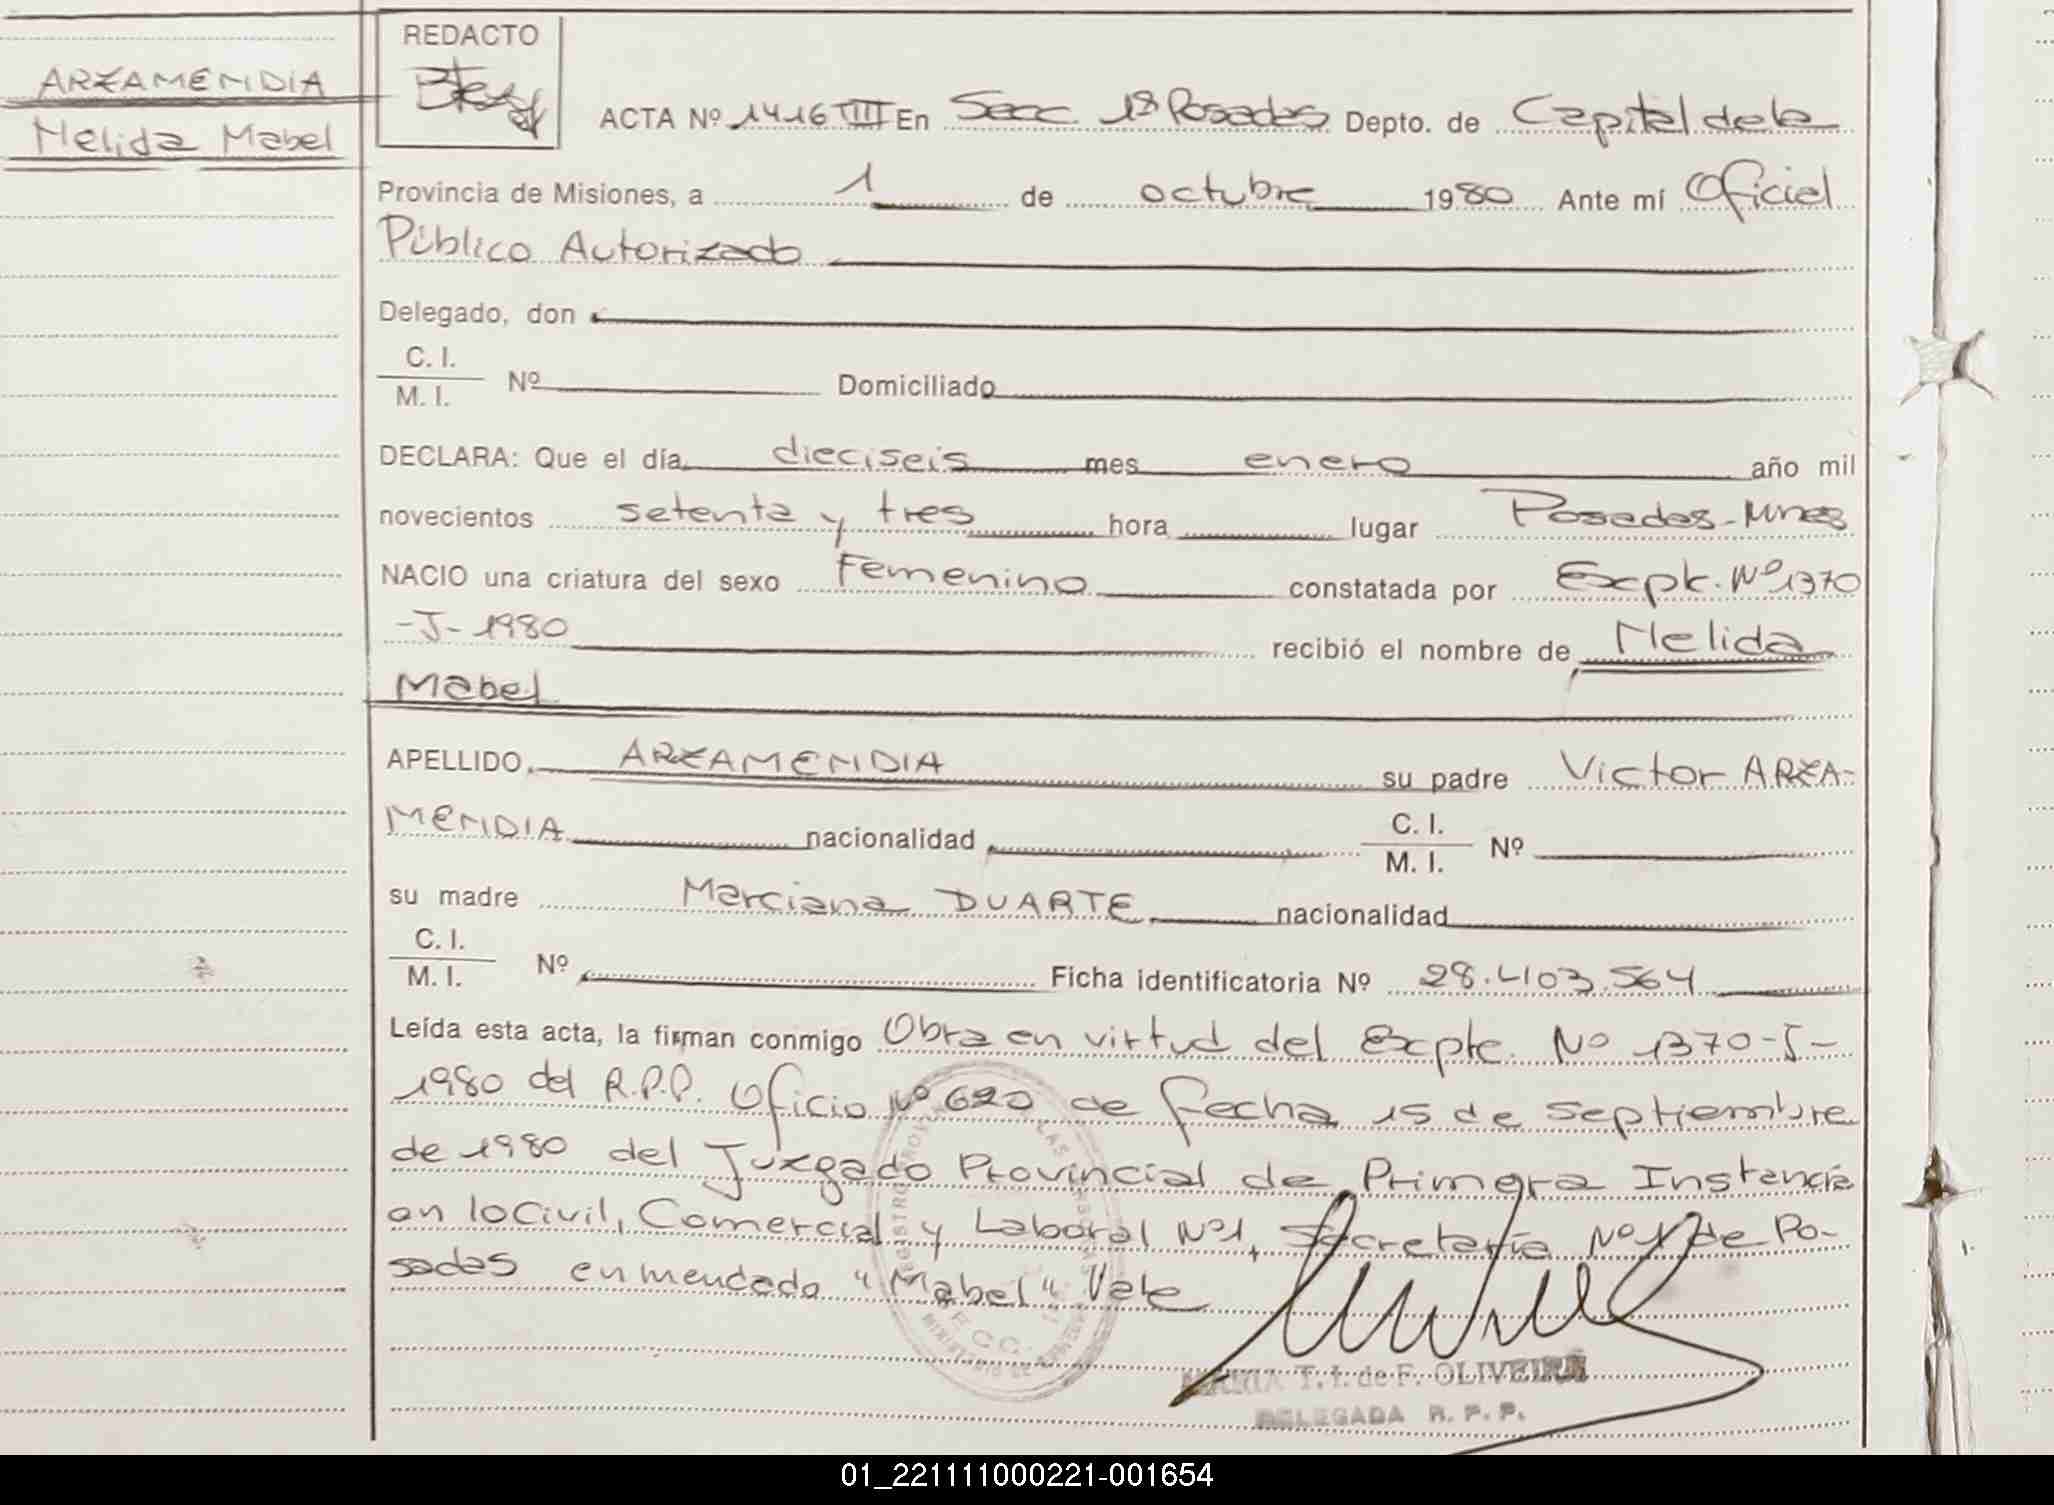 ARZAMENDIA
Nelida Mabel
REDACTO
ACTA Nº 1416 TIII En Secc 1ª Posadas Depto. de Capital de la
Provincia de Misiones, a 1 de octubre 1980 Ante mí Oficial
Público Autorizado
Delegado, don
C. I.
M. I. Nº Domiciliado
DECLARA: Que el día dieciseis mes enero año mil
novecientos setenta y tres hora lugar Posadas-Mnes
NACIO una criatura del sexo Femenino constatada por Expte. Nº 1370
-J- 1980 recibió el nombre de Nelida
Mabel
APELLIDO ARZAMENDIA su padre Victor ARZA-
MENDIA nacionalidad C. I. M. I. Nº
su madre Marciana DUARTE nacionalidad
C. I.
M. I. Nº Ficha identificatoria Nº 28.403.564
Leída esta acta, la firman conmigo Obra en virtud del Expte. Nº 1370-J-
1980 del R.P.P. Oficio Nº 620 de fecha 15 de septiembre
de 1980 del Juzgado Provincial de Primera Instancia
en lo Civil, Comercial y Laboral Nº1, Secretaría Nº 1 de Po-
sadas enmendado "Mabel" Vale
MARIA T. I. de F. OLIVEIRA
DELEGADA R. P. P.
01_221111000221-001654